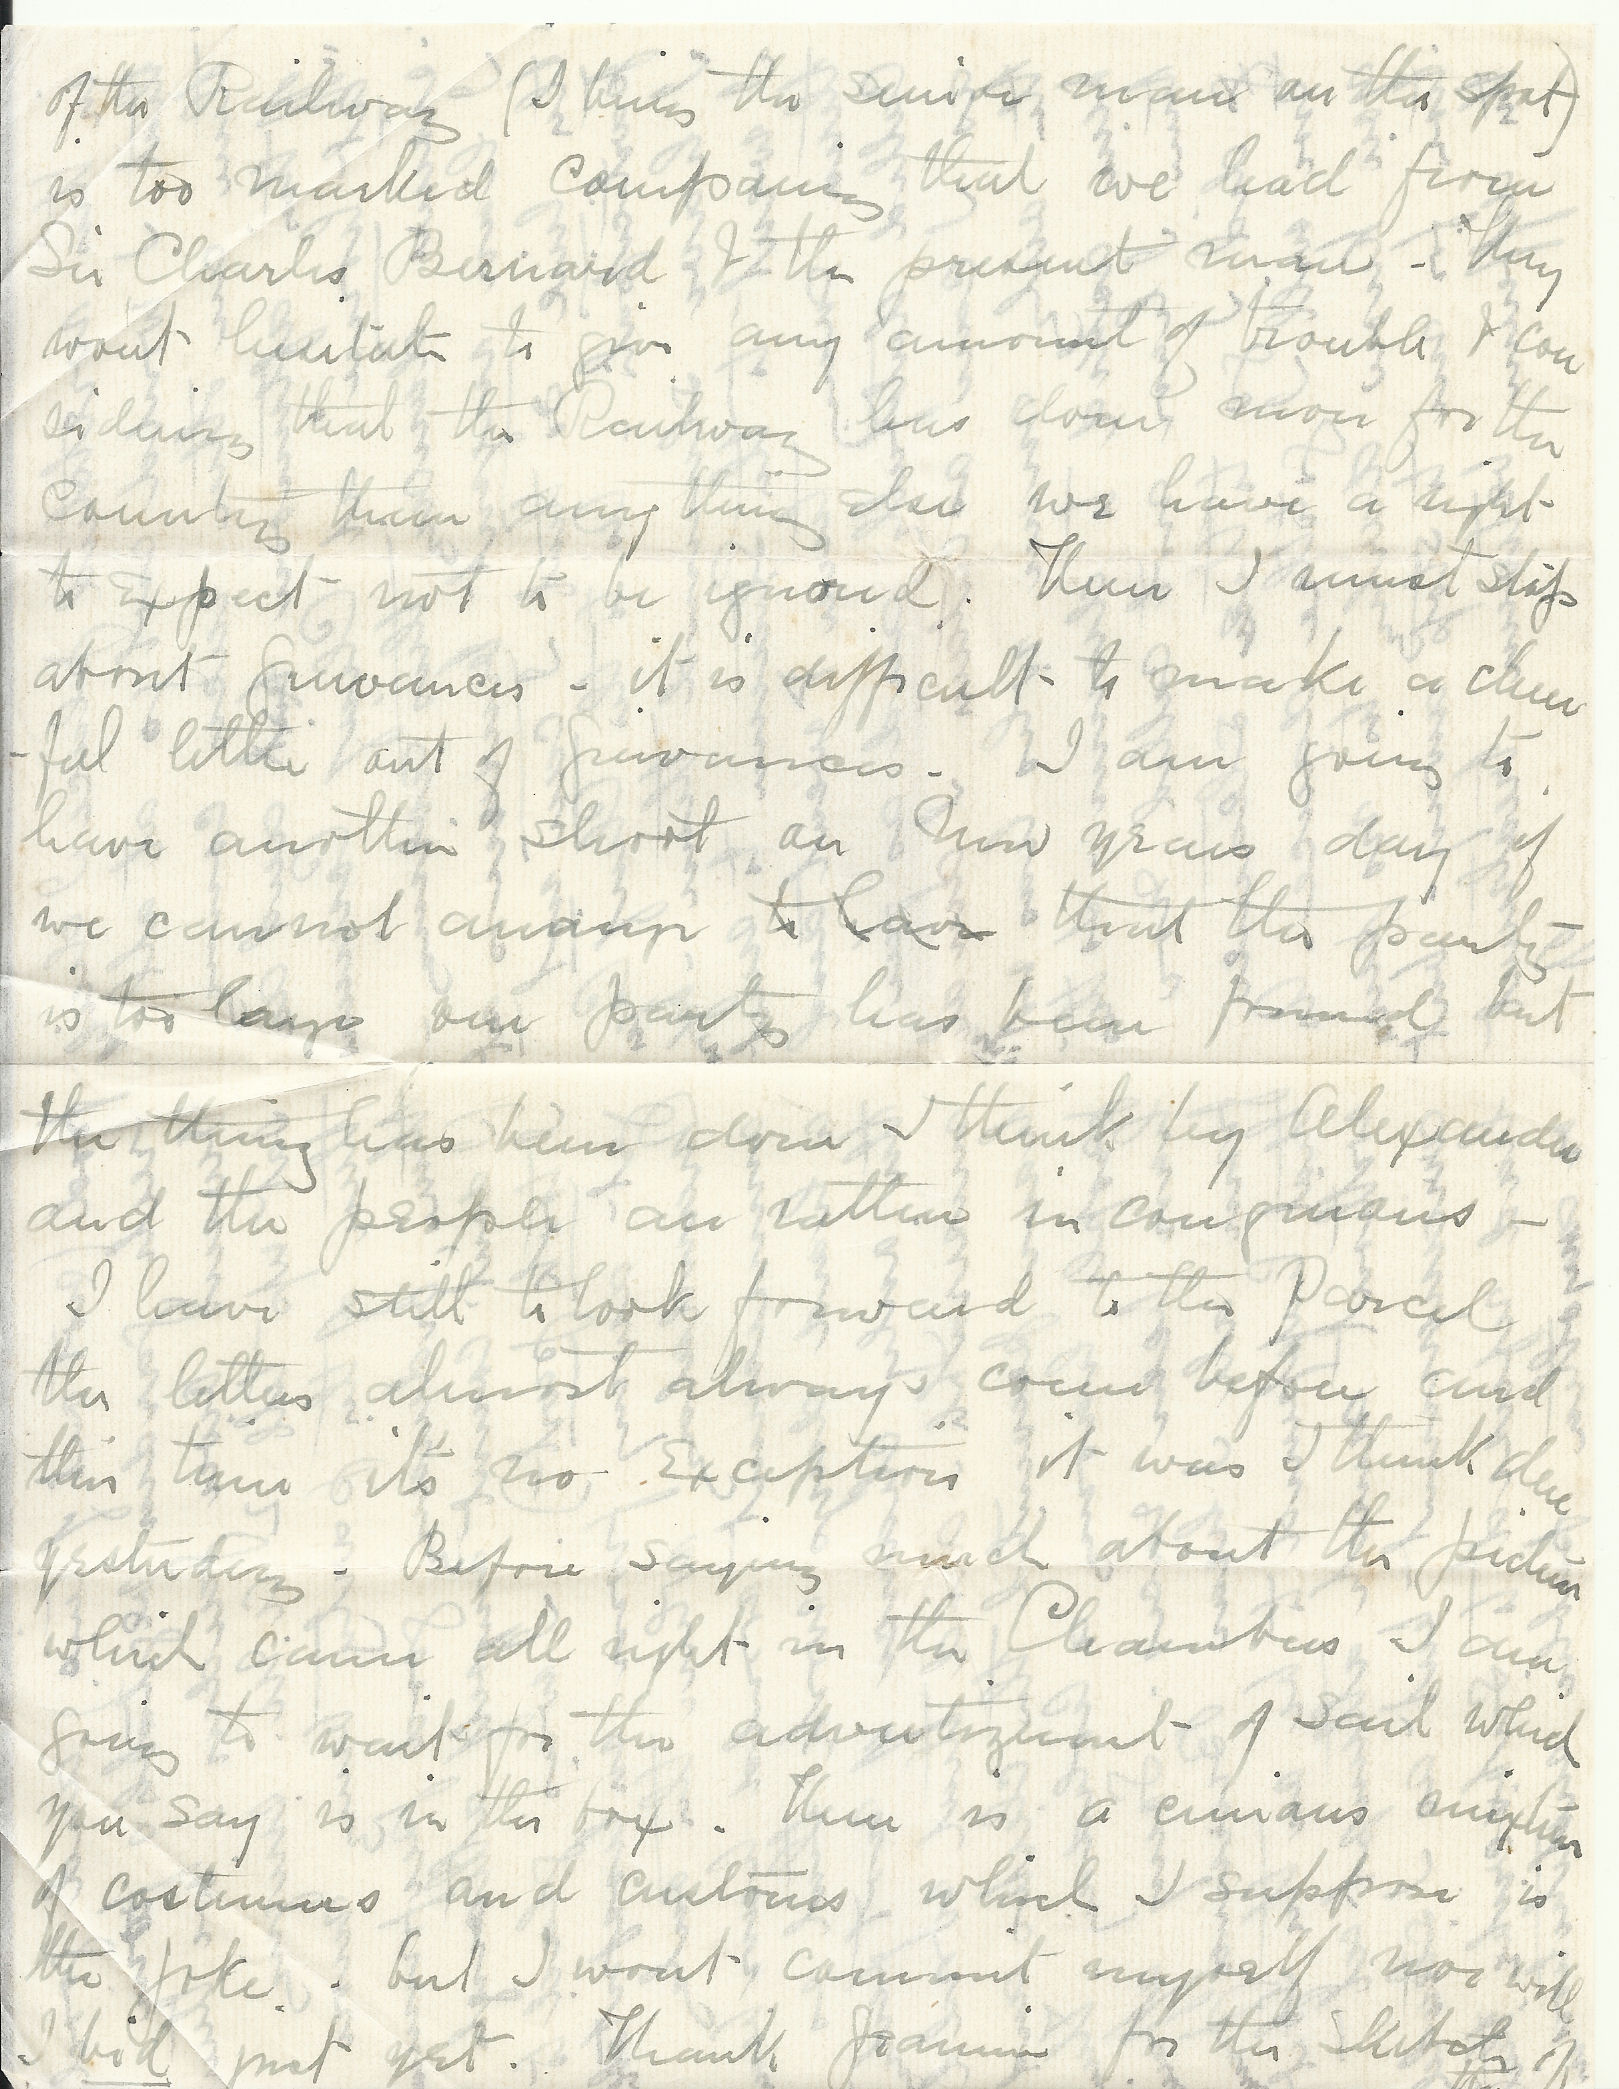 of the Railway (I being the senior man on the spot)
is too marked comparing that we had from
Sir Charles Bernard & the present man - They
wont hesitate to give any amount of trouble & con
sidering that the Railway has done more for the
country than anything else we have a right
to expect not to be ignored. There I must stop
about grievances - it is difficult to make a cheer
-ful letter out of grievances. I am going to
have another shoot on New years day if
we cannot arrange to have that the party
is too large one party has been formed but
the thing has been done I think by Alexander
and the people are rather incongruous -
I have still to look forward to the Parcel
the letters almost always come before and
this time its no exception it was I think due
yesterday - Before saying much about the picture
which came all right in the Chambers I am
going to wait for the advertizement of sail which
you say is in the box. There is a curious mixture
of costumes and customs which I suppose is
the joke. but I wont commit myself nor will
I bid just yet. Thank Jeannie for the sketch of
the